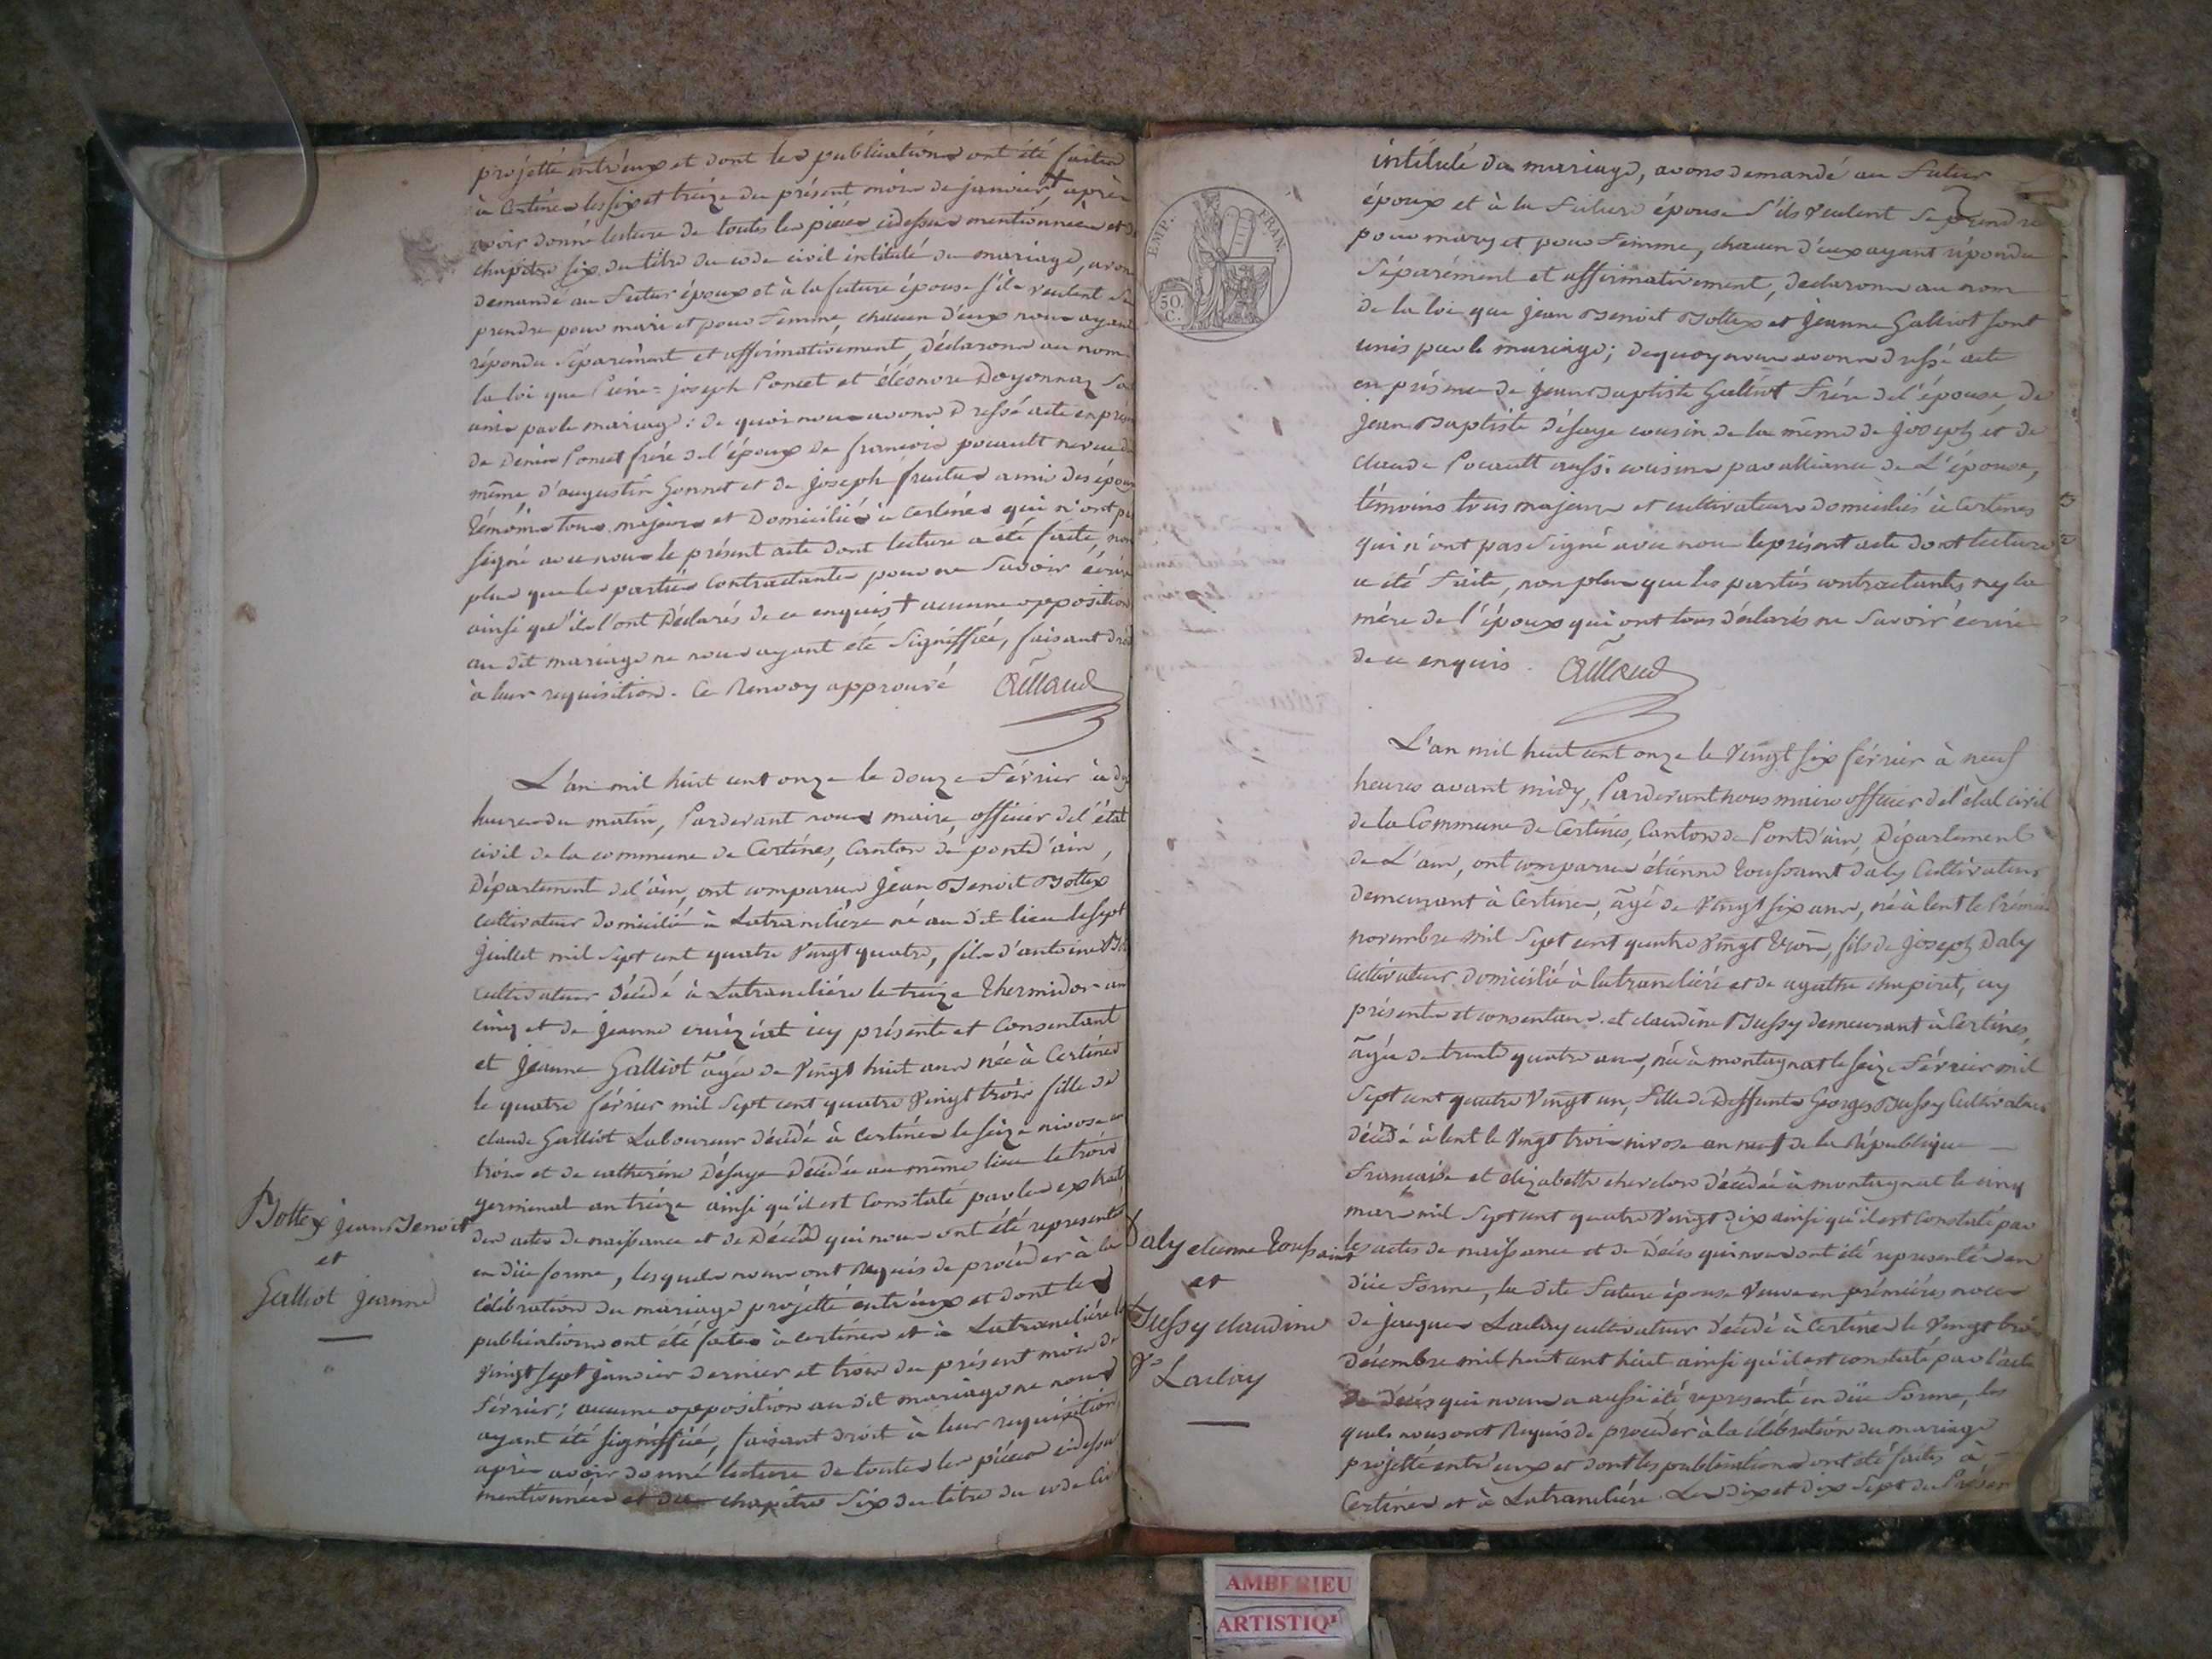 projetté entr'eux et dont les publications ont été faites
à Certines les six et treize du présent mois de janvier + après
avoir donné lecture de toutes les pièces cidessus mentionnées et du
chapitre six du titre du code civil intitulé du mariage, avons
demandé au futur époux et à la future épouse s'ils veulent se
prendre pour mari et pour femme, chacun d'eux nous ayant
répondu séparément et affirmativement, déclarons au nom
la loi que Pierre=joseph Poncet et éléonore Doyonnaz so
unis par le mariage: de quoi nous avons dressé acte en prés
de Denis Poncet frère de l'époux de françois pouault neveu du
même, d'augustin Gonnet et de joseph amis des époux
témoins tous majeurs et Domiciliés à Certines qui n'ont pa
signé avec nous le présent acte dont lecture a été faite, non
plus que les parties Contractantes pour ne Savoir écrire
ainsi qu'ils l'ont Déclarés de ce enquis + aucune opposition
au dit mariage ne nous ayant été signiffiée, faisant droit
à leur requisition. Ce Renvoy approuvé
L'an mil huit cent onze le douze Février à di
heures du matin, Pardevant nous maire, officier de l'état
civil de la commune de Certines, Canton de pont d'ain,
Département de l'ain, ont comparus jean Benoit Bottex
cultivateur domicilié à Latranclière né au dit lieu le sept
juillet mil sept cent quatre Vingt quatre, fils d'antoine Bo
cultivateur décédé à Latranclière le treize thermidor an
cinq et de jeanne icy présente et Consentant
et jeanne Galliot âgée de Vingt huit ans née à Certines
le quatre février mil sept cent quatre Vingt trois fille de
claude Galliot Laboureur décédé à Certines le seize nivose an
trois et de catherine Désaye décédée au même lieu le trois
germinal an treize ainsi qu'il est Constaté par les extraits
Bottex jean Benoit
et
Galliot jeanne
des actes de naissance et de Décès qui nous ont été representés
en düe forme, lesquels nous ont Requis de procéder à la
célébration du mariage projetté entr'eux et dont les
publications ont été faites à certines et à Latranclière le
Vingt sept janvier dernier et trois du présent mois de
février; aucune opposition au dit mariage ne nous
ayant été signiffiée, faisant droit à leur requisition,
après avoir donné lecture de toutes les pièces cidessus
mentionnées et du chapitre six du titre du code Civ
EMP. FRAN.
50.
C.
intitulé du mariage, avons demandé au futur
époux et à la future épouse s'ils veulent se prendre
pour mary et pour femme, chacun d'eux ayant répondu
séparément et affirmativement, declarons au nom
de la loi que jean Benoit Bottex et jeanne Galliot sont
unis par le mariage; dequoy nous avons dressé acte
en présence de jean Baptiste Galliot frère de l'épouse, de
jean Baptiste désaye cousin de la même de joseph et de
claude Pouault aussi cousins par alliance de L'épouse,
témoins tous majeurs et cultivateurs domiciliés à Certines
qui n'ont pas signé avec nous le présent acte dont lecture
a été faite, non plus que les parties contractantes, ny la
mère de l'époux qui ont tous déclarés ne savoir écrire
de ce enquis.
L'an mil huit cent onze le Vingt six février à neuf
heures avant midy, Pardevant nous maire officier de l'état civil
de la Commune de Certines, Canton de Pont d'ain, Département
de L'ain, ont comparus étienne toussaint daly Cultivateur
demeurant à Certines, âgé de Vingt six ans, né à lent le Prémier
novembre mil sept cent quatre Vingt trois, fils de joseph daly
Cultivateur domicilié à latranclière et de agathe icy
présents et consentans. et claudine Bussy demeurant à Certines,
âgée de trente quatre ans, née à montagnat le seize février mil
sept cent quatre Vingt un, fille de Deffunts Georges Bussy Cultivateur
décédé à lent le Vingt trois nivose an neuf de la République
française et elizabeth décédée à montagnat le cinq
mars mil sept cent quatre Vingt dix ainsi qu'il est Constaté par
Daly etienne toussaint
et
Bussy claudine
Ve Laclay
les actes de naissance et de décès qui nous ont été representés en
düe forme, la dite future épouse Veuve en prémières noces
de jacques Laclay cultivateur décédé à Certines le Vingt trois
décembre mil huit cent huit ainsi qu'il est constaté par l'acte
de décès qui nous a aussi été representé en düe forme, les
quels nous ont Requis de procéder à la célébration du mariage
projetté entr'eux et dont les publications ont été faites à
Certines et à Latranclière Les dix et dix sept du Présen
AMBERIEU
ARTISTIQ